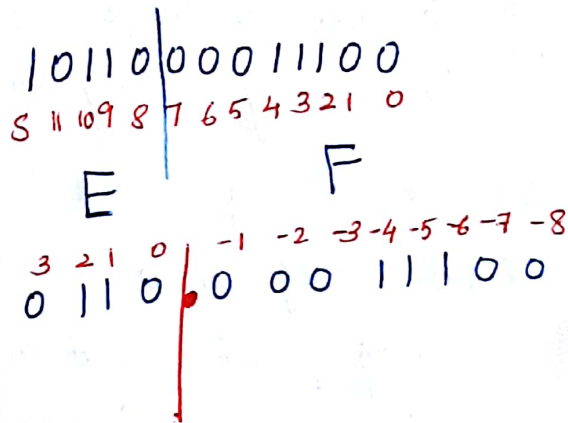 10110 00011100
S 11 10 9 8 7 6 5 4 3 2 1 0
E F
3 2 1 0 -1 -2 -3 -4 -5 -6 -7 -8
0 1 1 0 . 0 0 0 1 1 1 0 0